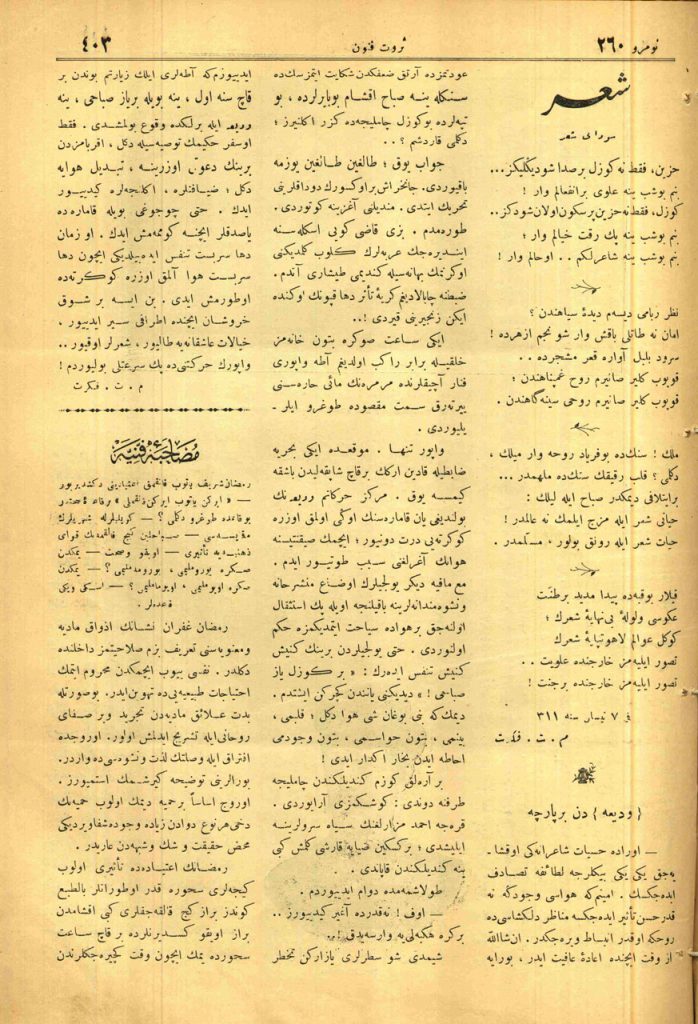 نومرو ٢٦٠
ثروت فنون
٤٠٣
شعر
سوداى شعر
حزين، فقط نه كوزل بر صدا شو ديكلديكز...
بنم بوشب ينه علوى بر انفعالم وار !
كوزل، فقط نه حزين بر سكون اولان شو دكز..
بنم بوشب ينه پك رقت خيالم وار ؛
بنم بوشب ينه شاعرلكم .. او حالم وار !
نظر ربامى ديسه‌م ديدهٔ سياهندن ؟
امان نه طاتلى باقش وار شو نجم ازهرده !
سرود بلبل آواره قعر مشجرده ..
قوپوب كلير صانيرم روح غمپناهندن ؛
قوپوب كلير صانيرم روحى سينه كاهندن .
ملك ! سنك‌ده بو فرياد روحه وار ميلك ،
دكلمى ؟ قلب رقيقك سنك‌ده ملهمدر ...
بر ابتلافى ديمكدر صباح ايله ليلك :
حياتى شعر ايله مزج ايلمك نه عالمدر !
حيات شعر ايله رونق بولور ، مسلمدر .
قيلار بو قبه‌ده پيدا مديد بر طنت
عكوسى ولولهٔ بى نهايهٔ شعرك ؛
كوكل عوالم لاهوتپايهٔ شعرك
تصور ايليه‌مز خارجنده علويت ..
تصور ايليه‌مز خارجنده بر جنت !
فى ٧ نيسان سنه ٣١١
م . ت . فكرت
{ وديعه } دن بر پارچه
— اوراده حسيات شاعرانه‌كى اوقشا-
يه‌جق يكى يكى بيكلرجه لطائفه تصادف
ايده‌جكسك . امينم‌كه هواسى وجودكه نه
قدر حسن تأثير ايده‌جكسه مناظر دلكشاسى‌ده
روحكه اوقدر انبساط ويره‌جكدر . ان‌شاالله
از وقت ايچنده اعادهٔ عافيت ايدر ، بورايه
عودتمزده آرتق ضعفكدن شكايت ايتمزسك‌ده
سنكله ينه صباح اقشام بويارلرده ، بو
تپه‌لرده بو كوزل چامليجه‌ده كزر اكلنيرز ؛
دكلمى قارداشم ؟ ..
جواب يوق ؛ طالغين طالغين يوزمه
باقيوردى. جانخراش بر اوكسورك دوداقلرينى
تحريك ايتدى . منديلنى آغزينه كوتوردى .
طوره‌مدم . بزى قاضى كويى اسكله‌سنه
اينديره‌جك عربه‌لرك كلوب كلمديكنى
اوكرنمك بهانه‌سيله كنديمى طيشارى آتدم .
ضبطنه چاباالاديغم كريهٔ تأثر دها قپونك اوكنده
ايكن زنجيرينى قيردى !..
ايكى ساعت صوكره بتون خانه‌مز
خلقيله برابر راكب اولديغم آطه واپورى
فنار آچيقلرنده مرمره‌نك مائى حاره‌سنى
ييرته‌رق سمت مقصوده طوغرو ايلر-
يليوردى .
واپور تنها . موقعده ايكى بحريه
ضابطيله قادين اركك بر قاچ شايقه‌ليدن باشقه
كيمسه يوق .
بولنديغى يان قاماره‌سنك اوكى اولمق اوزره
كوكرته‌يى درت دونيور ؛ ايچمك صيقنتيسنه
هوانك آغرلغنى سبب طوتيور ايدم .
مع مافيه ديكر يولجيلرك اوضاع منشرحانه
ونشوه‌مندانه‌لرينه باقيلنجه اويله پك استثقال
اولنه‌جق بر هواده سياحت ايتمديكمزه حكم
اولنوردى . حتى يولجيلردن برينك كنيش
كنيش تنفس ايده‌رك : « بر كوزل ياز
صباحى ! » ديديكنى ياننده كچركن ايشتدم .
ديمك‌كه بنى بوغان شى هوا دكل ؛ قلبمى ،
بينمى ، بتون حواسمى ، بتون وجودمى
احاطه ايدن بخار اكدار ايدى !
بر آره‌لق كوزم كنديلكندن چامليجه
طرفنه دوندى : كوشكمزى آرايوردى .
قره‌جه احمد مزارلغنك سياه سرولرينه
ايليشدى ؛ بر كسكين ضيايه قارشى كلمش كبى
ينه كنديلكندن قاپاندى .
طولاشمه‌مده دوام ايديوردم .
— اوف ! نه‌قدرده آغير كيديورز ..
بر كره هكبه‌لى‌يه وارسه‌يدق !..
شيمدى شو سطرلرى يازاركن تخطر
ايديورم‌كه آطه‌لرى ايلك زيارتم بوندن بر
قاچ سنه اول ، ينه بويله بر ياز صباحى ، ينه
ايله برلكده وقوع بولمشدى . فقط
اوسفر حكيمك توصيه‌سيله دكل ، اقربامزدن
برينك دعوتى اوزرينه ، تبديل هوايه
دكل ؛ ضيافتلره ، اكلنجه‌لره كيديبور
ايدك . حتى چوجوغى بويله قاماره‌ده
ياصدقلر ايچنه كوممه‌مش ايدك . او زمان
دها سربست تنفس ايده‌بيلديكى ايچون دها
سربست هوا آلمق اوزره كوكرته‌ده
اوطورمش ايدى . بن ايسه بر شوق
خروشان ايچنده اطرافى سير ايديبور ،
خيالات عاشقانه‌يه طاليور ، شعرلر اوقيور ..
واپورك حركتنى‌ده پك سرعتلى بوليوردم !
م . ت . فكرت
مصاحبهٔ فنيه
رمضان شريف
— « ايركن ياتوب ايركن قالقملى »
بوقاعده طوغرو دكلمى ؟ —
— اويقو وصحت — يمكدن
صكره يوروملى ، يورومه‌ملى ؟ — يمكدن
صكره اويوملى ، اويوماملى ؟ — اسكى ويكى
قاعده‌لر .
رمضان غفران نشانك اذواق ماديه
ومعنويه‌سنى تعريف بزم صلاحيتمز داخلنده
دكلدر . نفسى ييوب ايچمكدن محروم ايتمك
احتياجات طبيعيه‌يى‌ده تهوين ايدر. بو صورتله
بدت علائق ماديه‌دن تجريد وبر صفاى
روحانى ايله تشريح ايدلمش اولور. اوروجده
افتراق ايله وصلتك لذت ونشوه‌سى‌ده واردر.
بورالرينى توضيحه كيرشمك استميورز .
اوروج اساساً بر حميه ديمك اولوب حميه‌نك
دخى هر نوع دوادن زياده وجوده شفاويرديكى
محض حقيقت و شك وشبهه‌دن عاريدر .
رمضانك اعتياده‌ده تأثيرى اولوب
كيجه‌لرى سحوره قدر اوطورانلر بالطبع
كوندز براز كيج قالقه‌جقلرى كبى اقشامدن
براز اويقو كسديرنلرده بر قاچ ساعت
سحورده يمك ايچون وقت كچيره‌جكلرندن